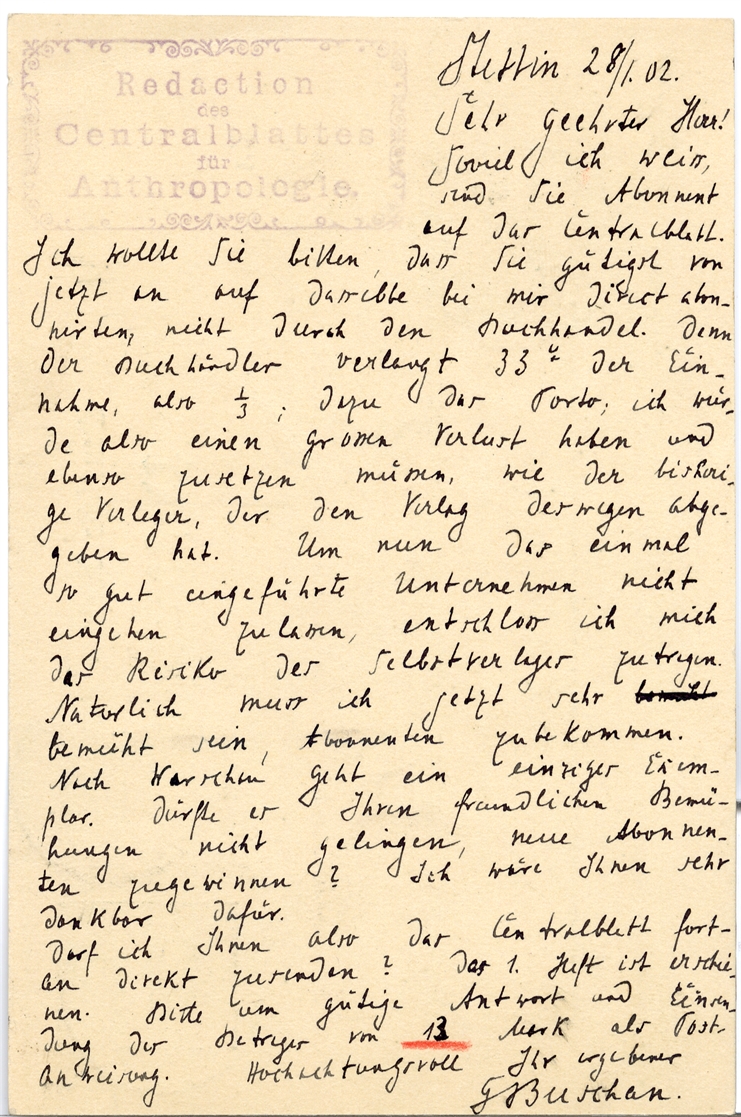 Redaction
des
Centralblattes
für
Anthropologie.
Stettin 28/1. 02.
Sehr geehrter Herr!
Soviel ich weiss,
sind Sie Abonnent
auf das Centralblatt.
Ich wollte Sie bitten, dass Sie gütigst von
jetzt an auf dasselbe bei mir direct abon-
nirten, nicht durch den Buchhandel. Denn
der Buchhändler verlangt 33 % der Ein-
nahme, also 1/3; dazu das Porto; ich wür-
de also einen grossen Verlust haben und
ebenso zusetzen müssen, wie der bisheri-
ge Verleger, der den Verlag deswegen abge-
geben hat. Um nun das einmal
so gut eingeführte Unternehmen nicht
eingehen zulassen, entschloss ich mich
das Risiko des Selbstverlages zutragen.
Natürlich muss ich jetzt sehr
bemüht sein, Abonnenten zubekommen.
Nach Warschau geht ein einziges Exem-
plar. Dürfte es Ihren freundlichen Bemü-
hungen nicht gelingen, neue Abonnen-
ten zugewinnen? Ich wäre Ihnen sehr
dankbar dafür.
Darf ich Ihnen also das Centralblatt fort-
an direkt zusenden? Das 1. Heft ist erschie-
nen. Bitte um gütige Antwort und Einsen-
dung des Betrages von 13 Mark als Post-
anweisung. Hochachtungsvoll Ihr ergebener
GBuschan.